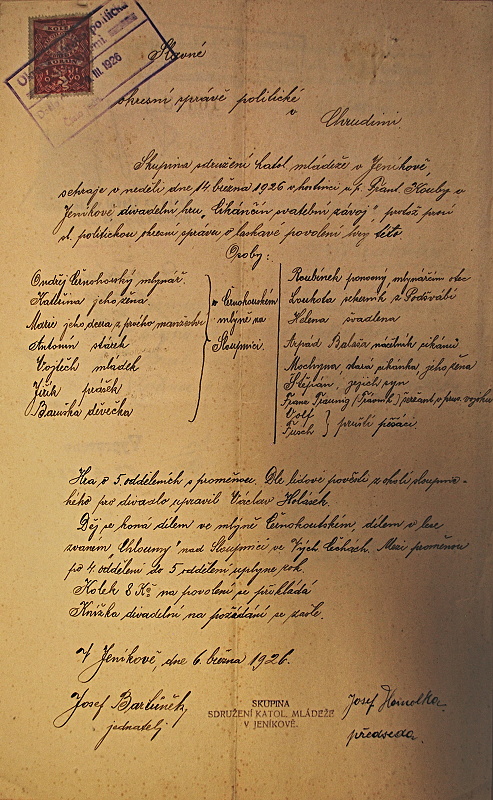 Slavné
okresní správě politické
v
Chrudimi.
Skupina sdružení katol. mládeže v Jeníkově,
sehraje v neděli dne 14 března 1926 v hostinci u p. Frant. Kouby v
Jeníkově divadelní hru „Cikánčin svatební závoj", pročež prosí
sl. politickou okresní správu o laskavé povolení hry této.
Osoby:
Ondřej Černohorský mlynář.
Kateřina jeho žena.
Marie jeho dcera z prvého manželství
Antonín stárek
Vojtěch mládek
Jiřík prášek
Baruška děvečka
v Černohorském
mlýně na
Sloupnici.
Roubínek ponocný, mlynářčin otec
Loukota sekerník z Poděvabí
Helena švadlena
Arpád Balaža náčelník cikánů
Mochyna stará cikánka jeho žena
Štěpán, jejich syn
Franc Traunig
Wolf
Tusch } pruští pěšáci.
Hra o 5. odděleních s proměnou. Dle lidové pověsti z okolí sloupnic-
kého pro divadlo upravil Václav Holásek.
Děj se koná dílem ve mlýně Černohorském, dílem v lese
zvaném „Chlumy" nad Sloupnicí ve Vých. Čechách. Mezi proměnou
po 4 oddělení a 5 oddělení uplyne rok.
Kolek 8 Kč na povolení se přikládá
Knížka divadelní na požádání se zašle.
V Jeníkově, dne 6. března 1926.
Josef Bartůněk,
jednatel
SKUPINA
SDRUŽENÍ KATOL. MLÁDEŽE
V JENÍKOVĚ.
Josef Homolka
předseda.
III 1926